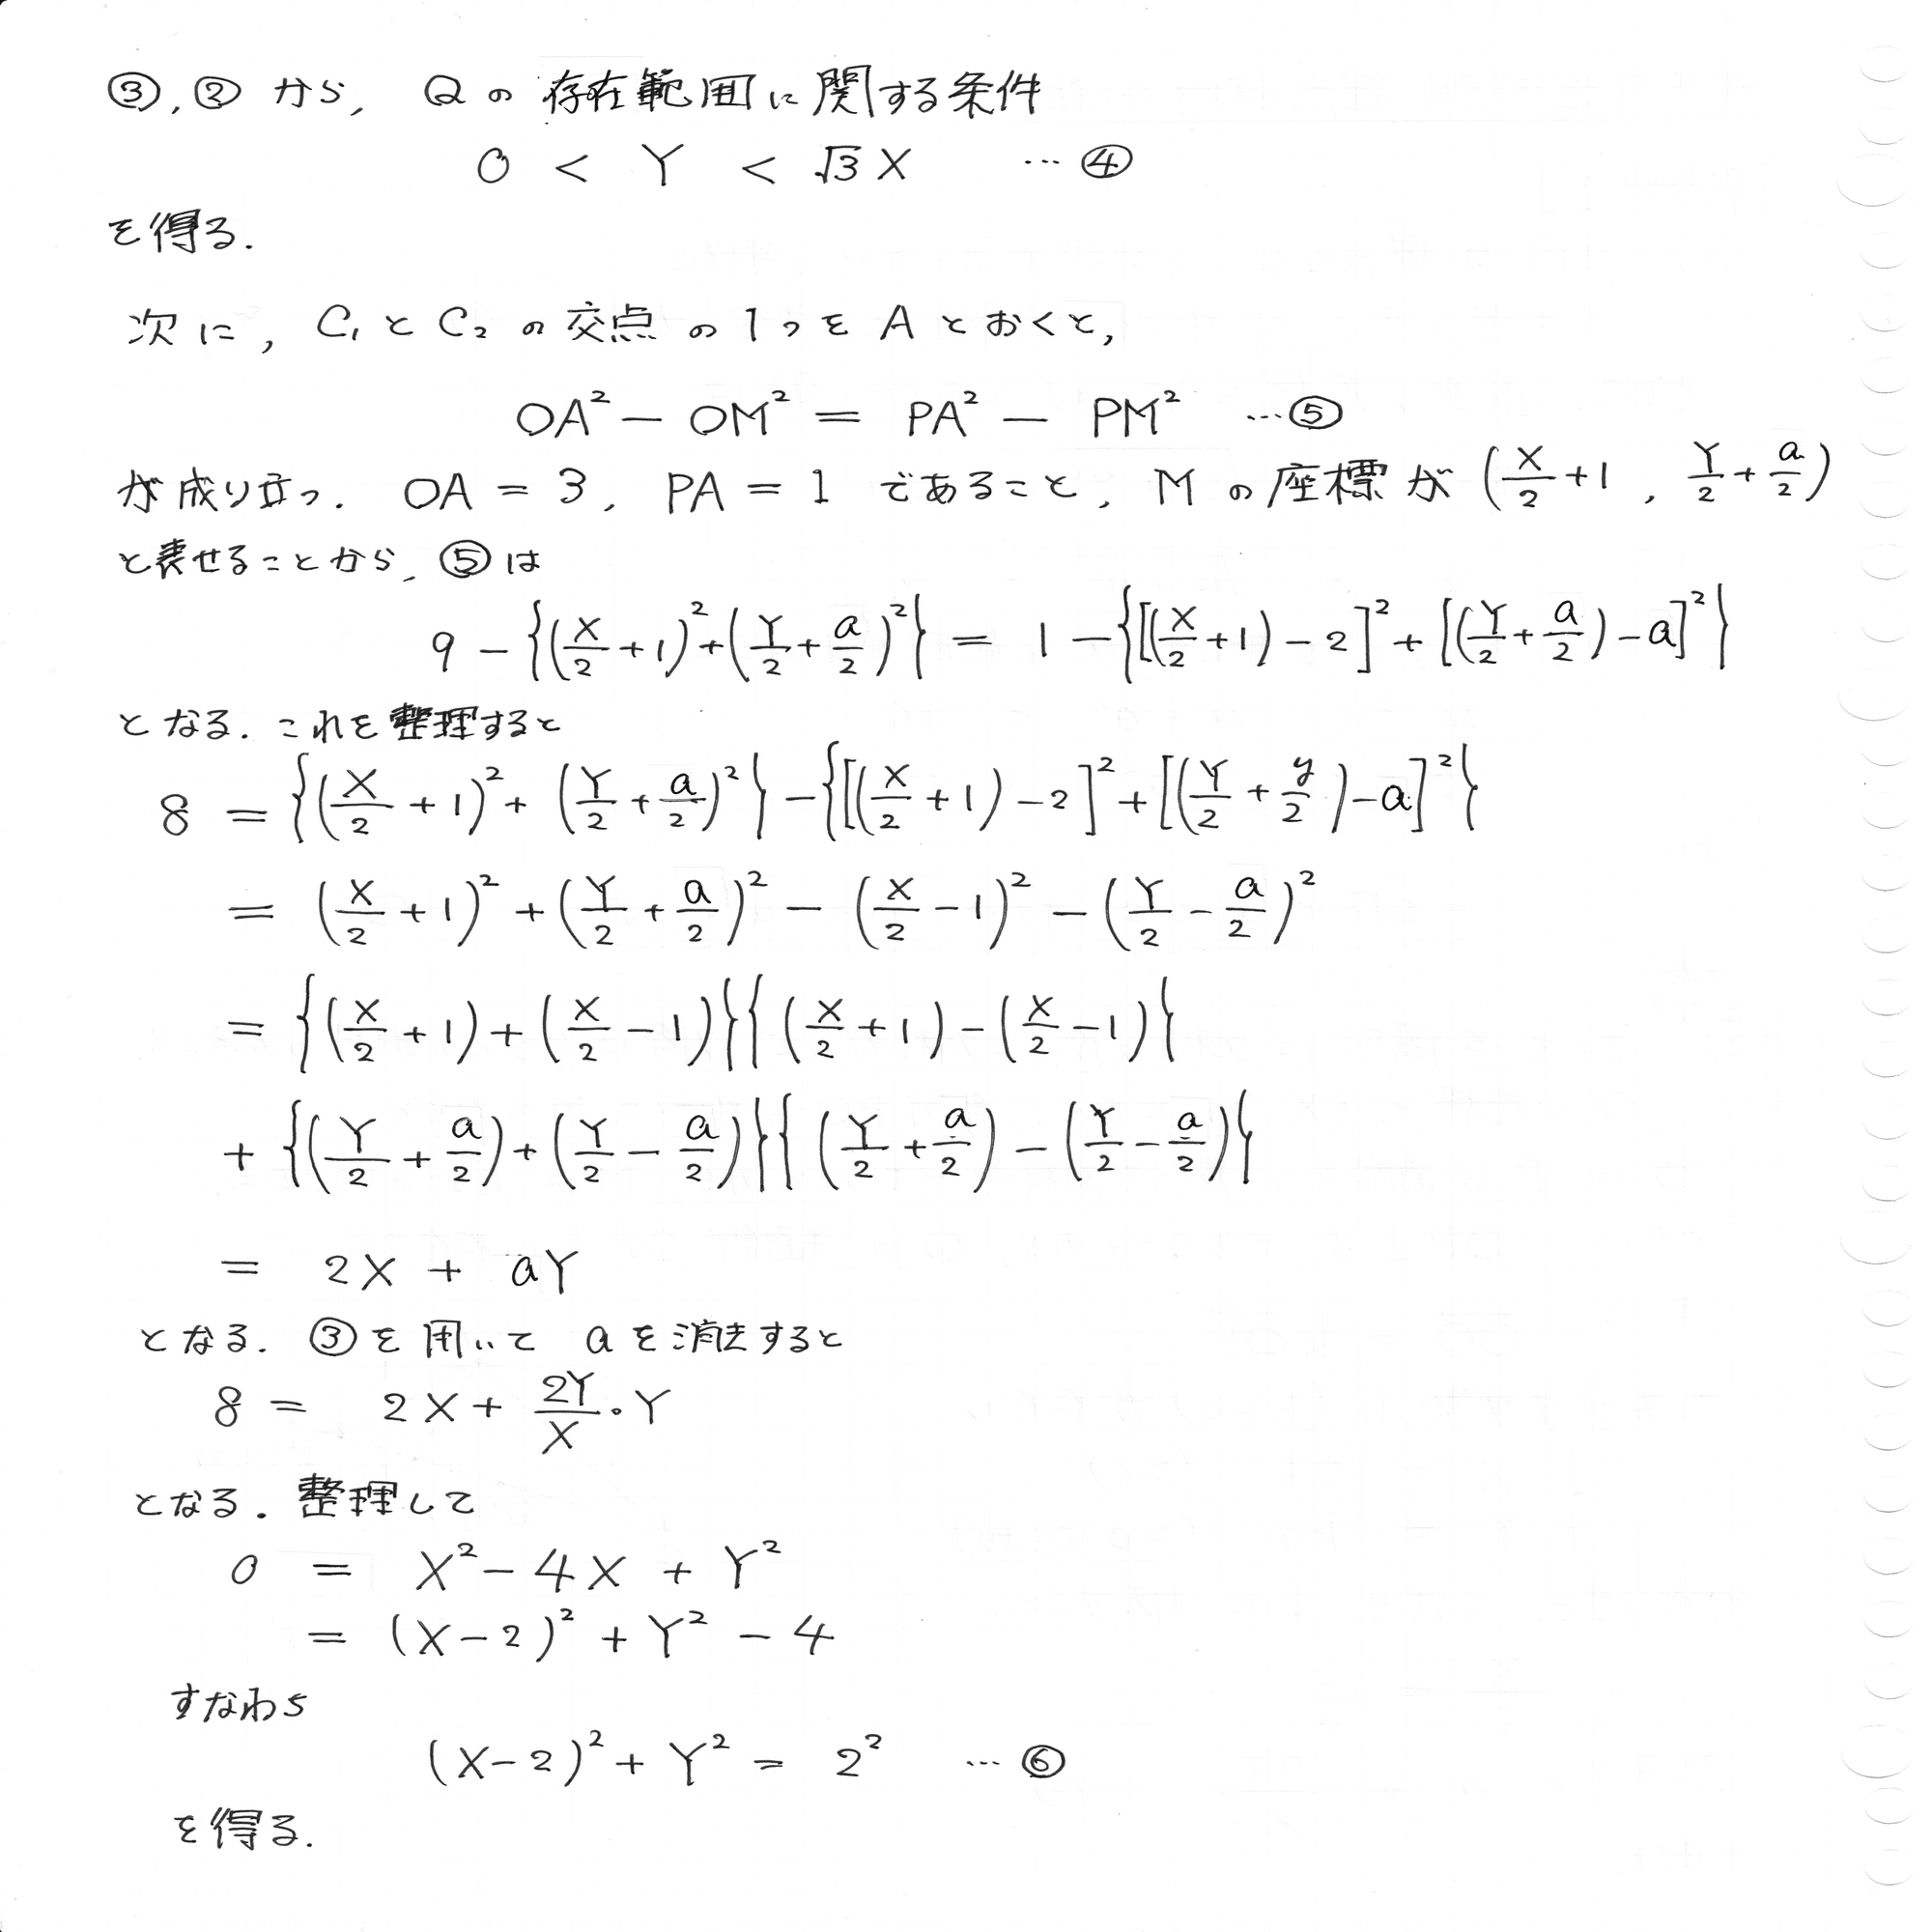 ③, ② から, Q の 存在範囲に関する条件
0 < Y < √3 X … ④
を得る.
次に, C₁ と C₂ の交点の1つを A とおくと,
OA² − OM² = PA² − PM² … ⑤
が成り立つ. OA = 3, PA = 1 であること, M の座標が (X/2 + 1, Y/2 + a/2)
と表せることから, ⑤は
9 − {(X/2 + 1)² + (Y/2 + a/2)²} = 1 − {[(X/2 + 1) − 2]² + [(Y/2 + a/2) − a]²}
となる. これを整理すると
8 = {(X/2 + 1)² + (Y/2 + a/2)²} − {[(X/2 + 1) − 2]² + [(Y/2 + y/2) − a]²}
= (X/2 + 1)² + (Y/2 + a/2)² − (X/2 − 1)² − (Y/2 − a/2)²
= {(X/2 + 1) + (X/2 − 1)}{(X/2 + 1) − (X/2 − 1)}
+ {(Y/2 + a/2) + (Y/2 − a/2)}{(Y/2 + a/2) − (Y/2 − a/2)}
= 2X + aY
となる. ③を用いて a を消去すると
8 = 2X + 2Y/X · Y
となる. 整理して
0 = X² − 4X + Y²
= (X − 2)² + Y² − 4
すなわち
(X − 2)² + Y² = 2² … ⑥
を得る.